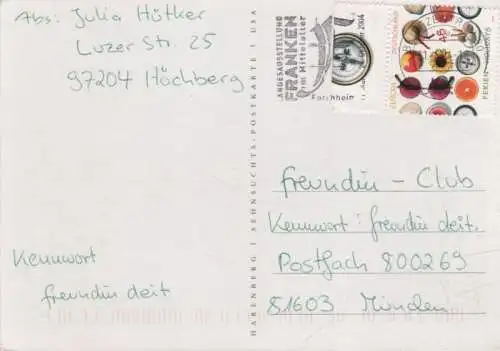 Abs: Julia Hütker
Luzer Str. 25
97204 Höchberg
LANDESAUSSTELLUNG
FRANKEN
im Mittelalter
Forchheim
2004
DEUTSCHLAND
45
FERIEN
EUROPA
HARENBERG | SEHNSUCHTS-POSTKARTE | USA
freundin - Club
Kennwort: freundin deit.
Postfach 800269
81603 München
Kennwort
freundin deit